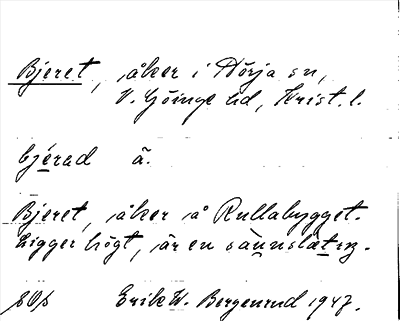 Bjeret, åker i Nörja sn,
V. Göinge hd, Krist. l.
bjérad ä.
Bjeret, åker å Rullabygget.
Ligger högt, är en
Erik W. Bergenrud 1947.